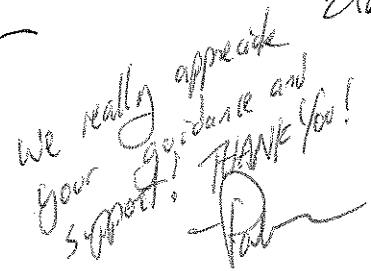 We really appreciate
your guidance and
support! THANK You!